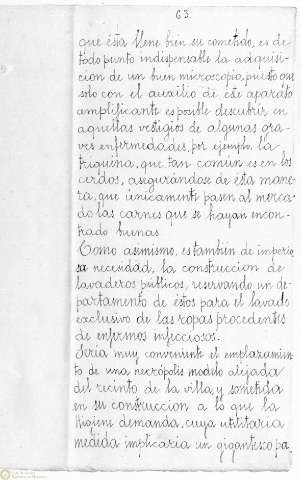 63
que ésta llene bien su cometido, es de
todo punto indispensable la adquisi-
cion de un buen microscopio, puesto que
solo con el auxilio de este aparato
amplificante es posible descubrir en
aquellas vestigios de algunas gra-
ves enfermedades, por ejemplo, la
triquina, que tan común es en los
cerdos, asegurándose de esta mane-
ra, que únicamente pasen al merca-
do las carnes que se hayan encon-
trado buenas.
Como asimismo, es también de imperio
sa necesidad, la construccion de
lavaderos públicos, reservando un de-
partamento de éstos para el lavado
exclusivo de las ropas procedentes
de enfermos infecciosos.
Seria muy conveniente el emplazamien
to de una necrópolis modelo alejada
del recinto de la villa y sometida
en su construccion a lo que la
Higiene demanda, cuya utilitaria
medida implicaria un gigantesco pa